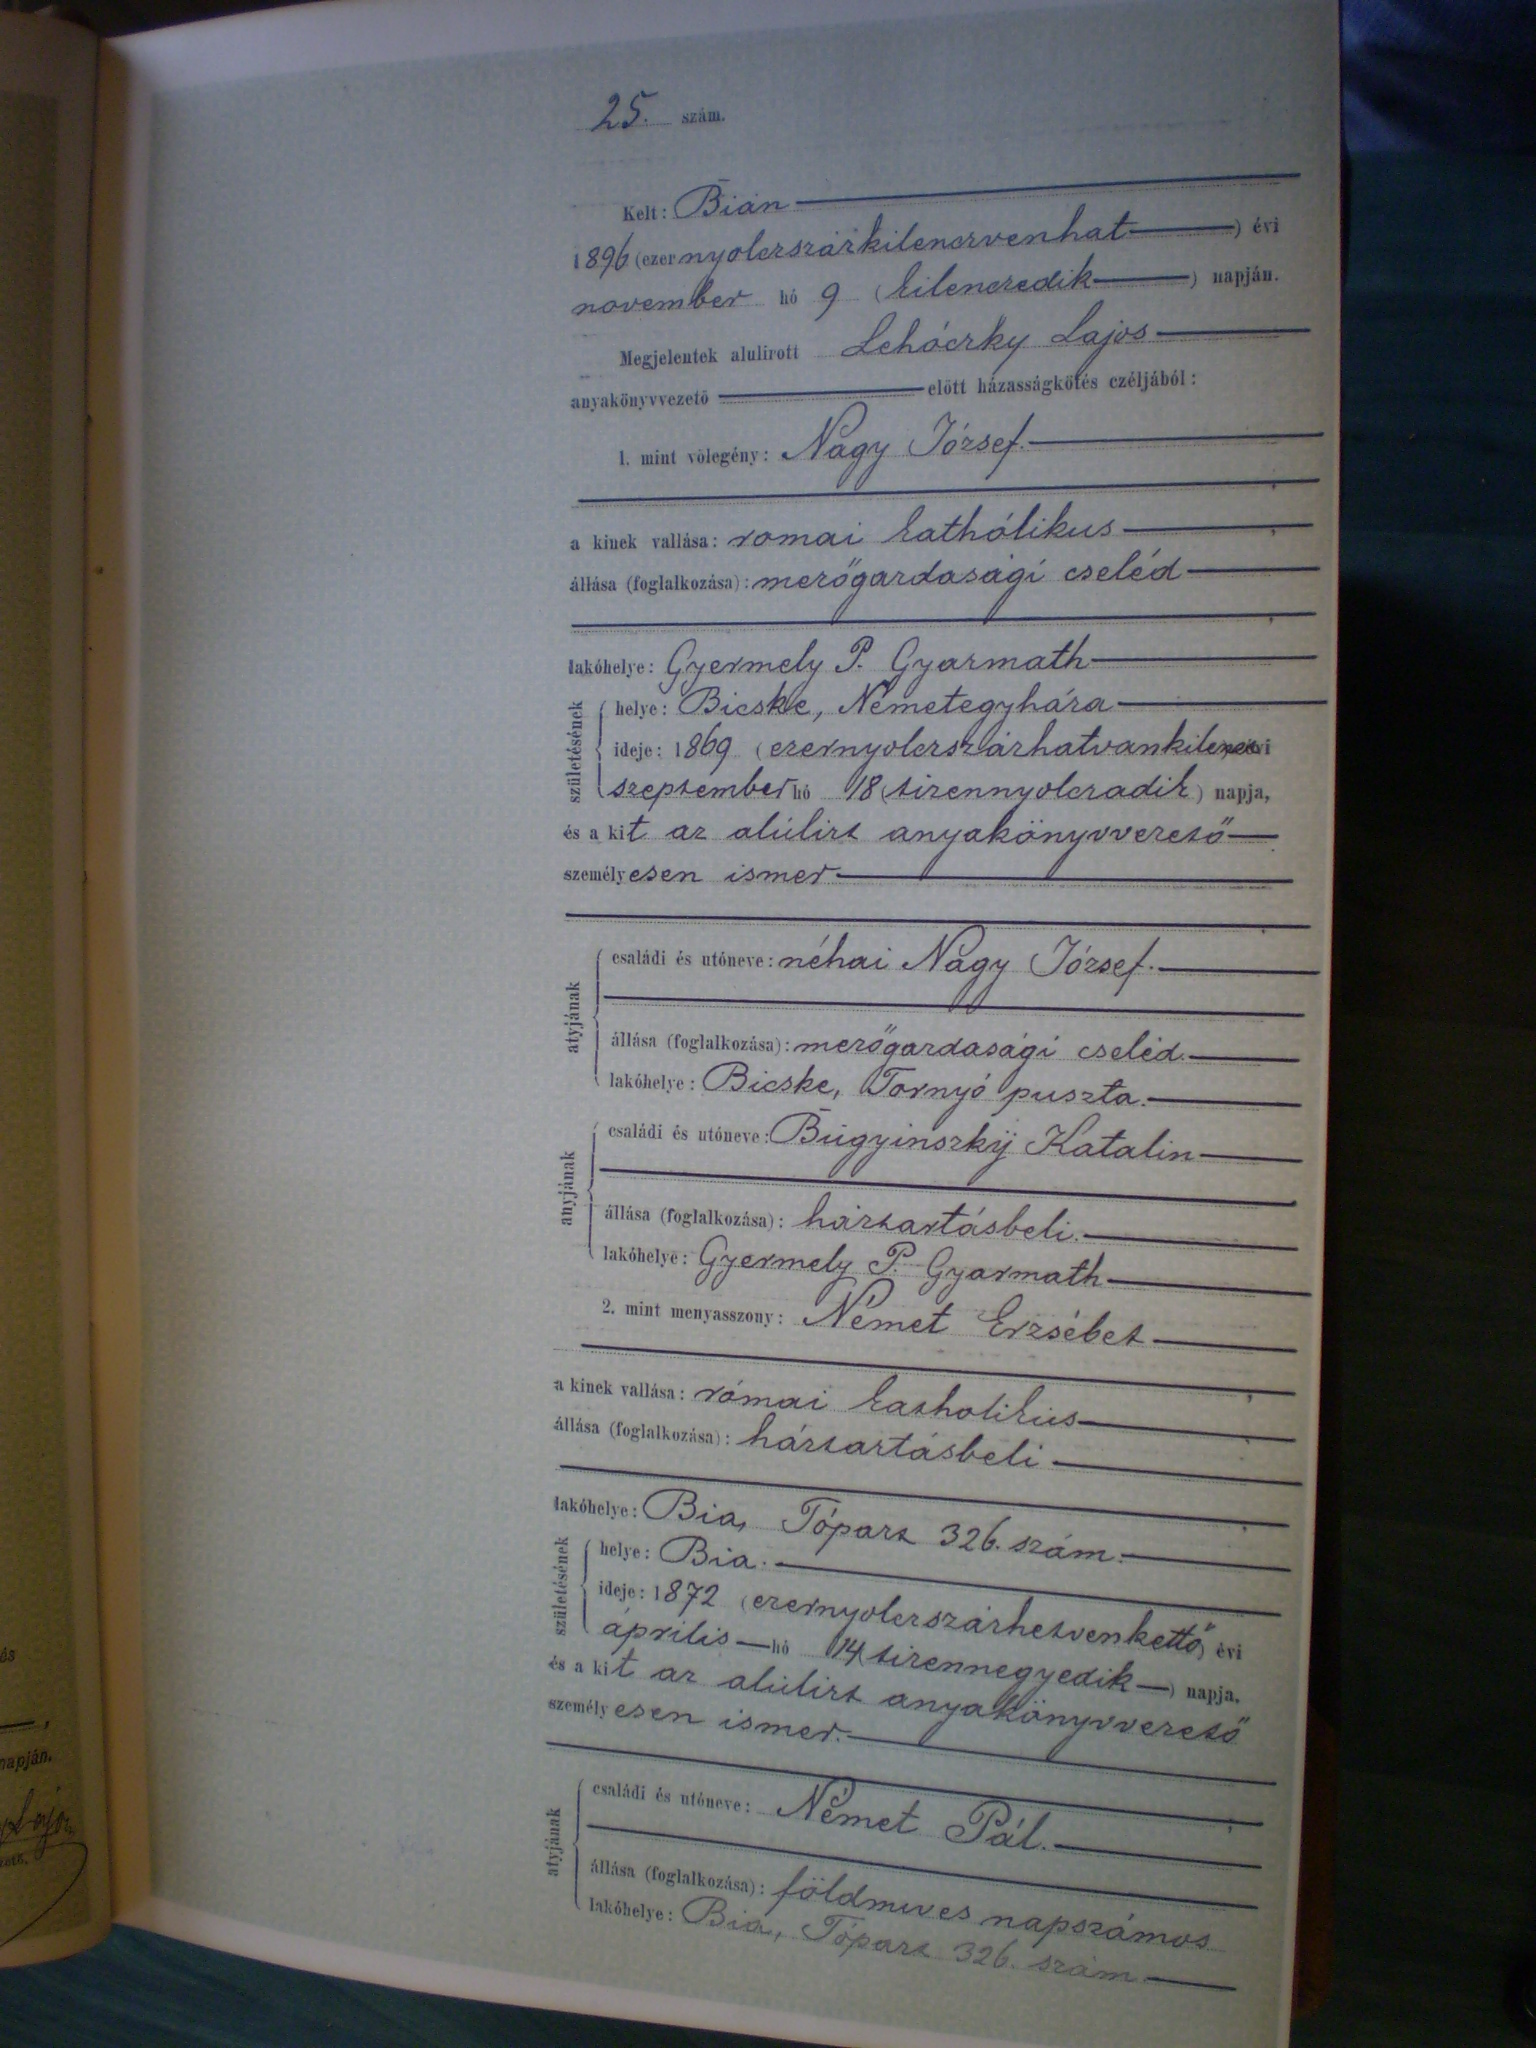 25. szám.
Kelt: Bián
1896 (ezernyolczszázkilenczvenhat) évi
november hó 9 (kilenczedik) napján.
Megjelentek alulirott Lehóczky Lajos
anyakönyvvezető előtt házasságkötés czéljából:
1. mint völegény: Nagy József.
a kinek vallása: romai kathólikus
állása (foglalkozása): mezőgazdasági cseléd
lakóhelye: Gyermely P. Gyarmath
születésének
helye: Bicske, Németegyháza
ideje: 1869 (ezernyolczszázhatvankilencz évi
szeptember hó 18 (tizennyolczadik) napja,
és a kit az alúlirt anyakönyvvezető
személyesen ismer
atyjának
családi és utóneve: néhai Nagy József.
állása (foglalkozása): mezőgazdasági cseléd.
lakóhelye: Bicske, Tornyó puszta.
anyjának
családi és utóneve: Búgyinszkÿ Katalin
állása (foglalkozása): háztartásbeli.
lakóhelye: Gyermely P. Gyarmath
2. mint menyasszony: Német Erzsébet
a kinek vallása: római katholikus
állása (foglalkozása): háztartásbeli
lakóhelye: Bia, Tópart 326. szám.
születésének
helye: Bia.
ideje: 1872 (ezernyolczszázhetvenkettő) évi
április hó 14 (tizennegyedik) napja,
és a kit az alúlirt anyakönyvvezető
személyesen ismer.
atyjának
családi és utóneve: Német Pál.
állása (foglalkozása): földmives napszámos
lakóhelye: Bia, Tópart 326. szám
és
napján.
Lajos